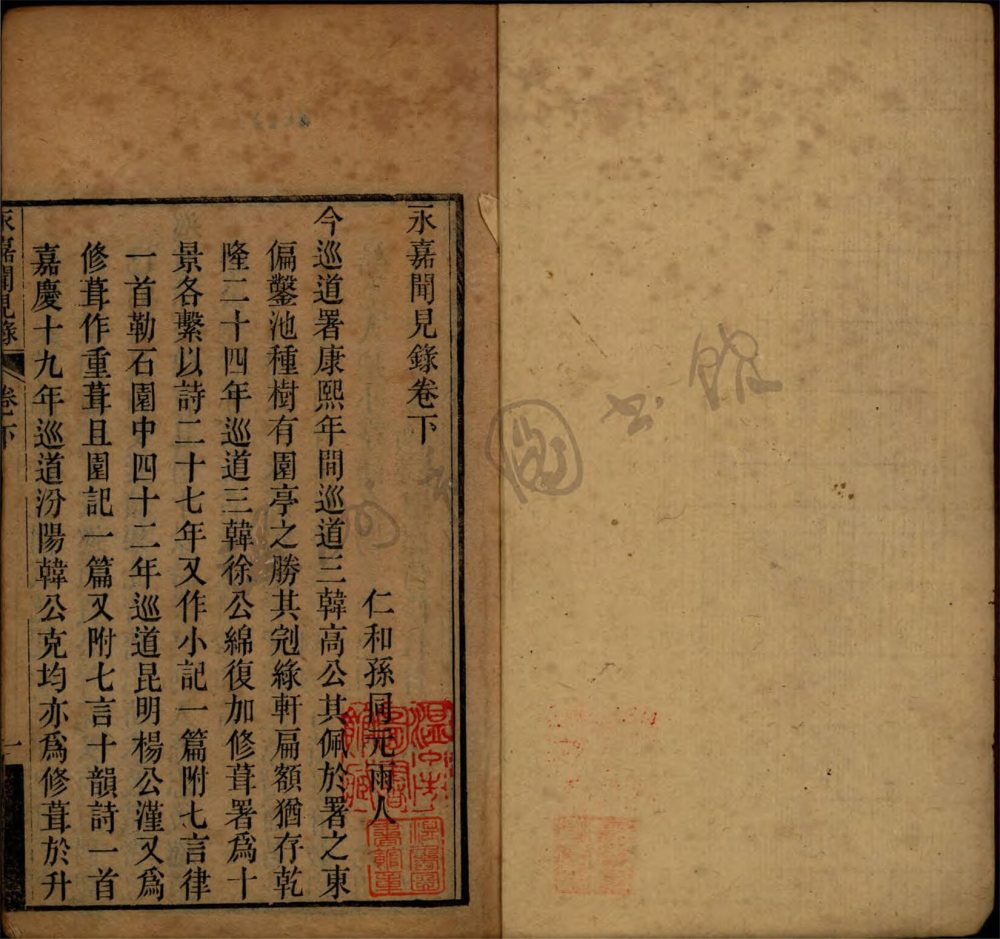 永嘉聞見錄卷下
仁和孫同元雨人
今巡道署康熙年間巡道三韓高公其佩於署之東
偏鑿池種樹有園亭之勝其剜綠軒扁額猶存乾
隆二十四年巡道三韓徐公綿復加修葺署為十
景各繫以詩二十七年又作小記一篇附七言律
一首勒石園中四十二年巡道昆明楊公漌又為
修葺作重葺且園記一篇又附七言十韻詩一首
嘉慶十九年巡道汾陽韓公克均亦為修葺於升
永嘉聞見錄 卷下 一